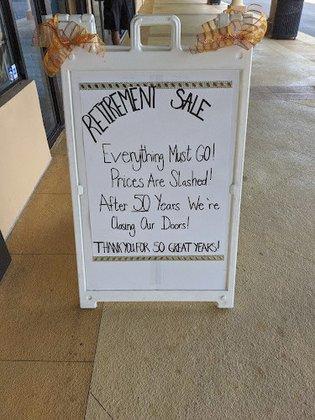 RETIREMENT SALE
Everything Must GO!
Prices Are Slashed!
After 50 Years We're
Closing Our Doors!
THANK YOU FOR 50 GREAT YEARS!